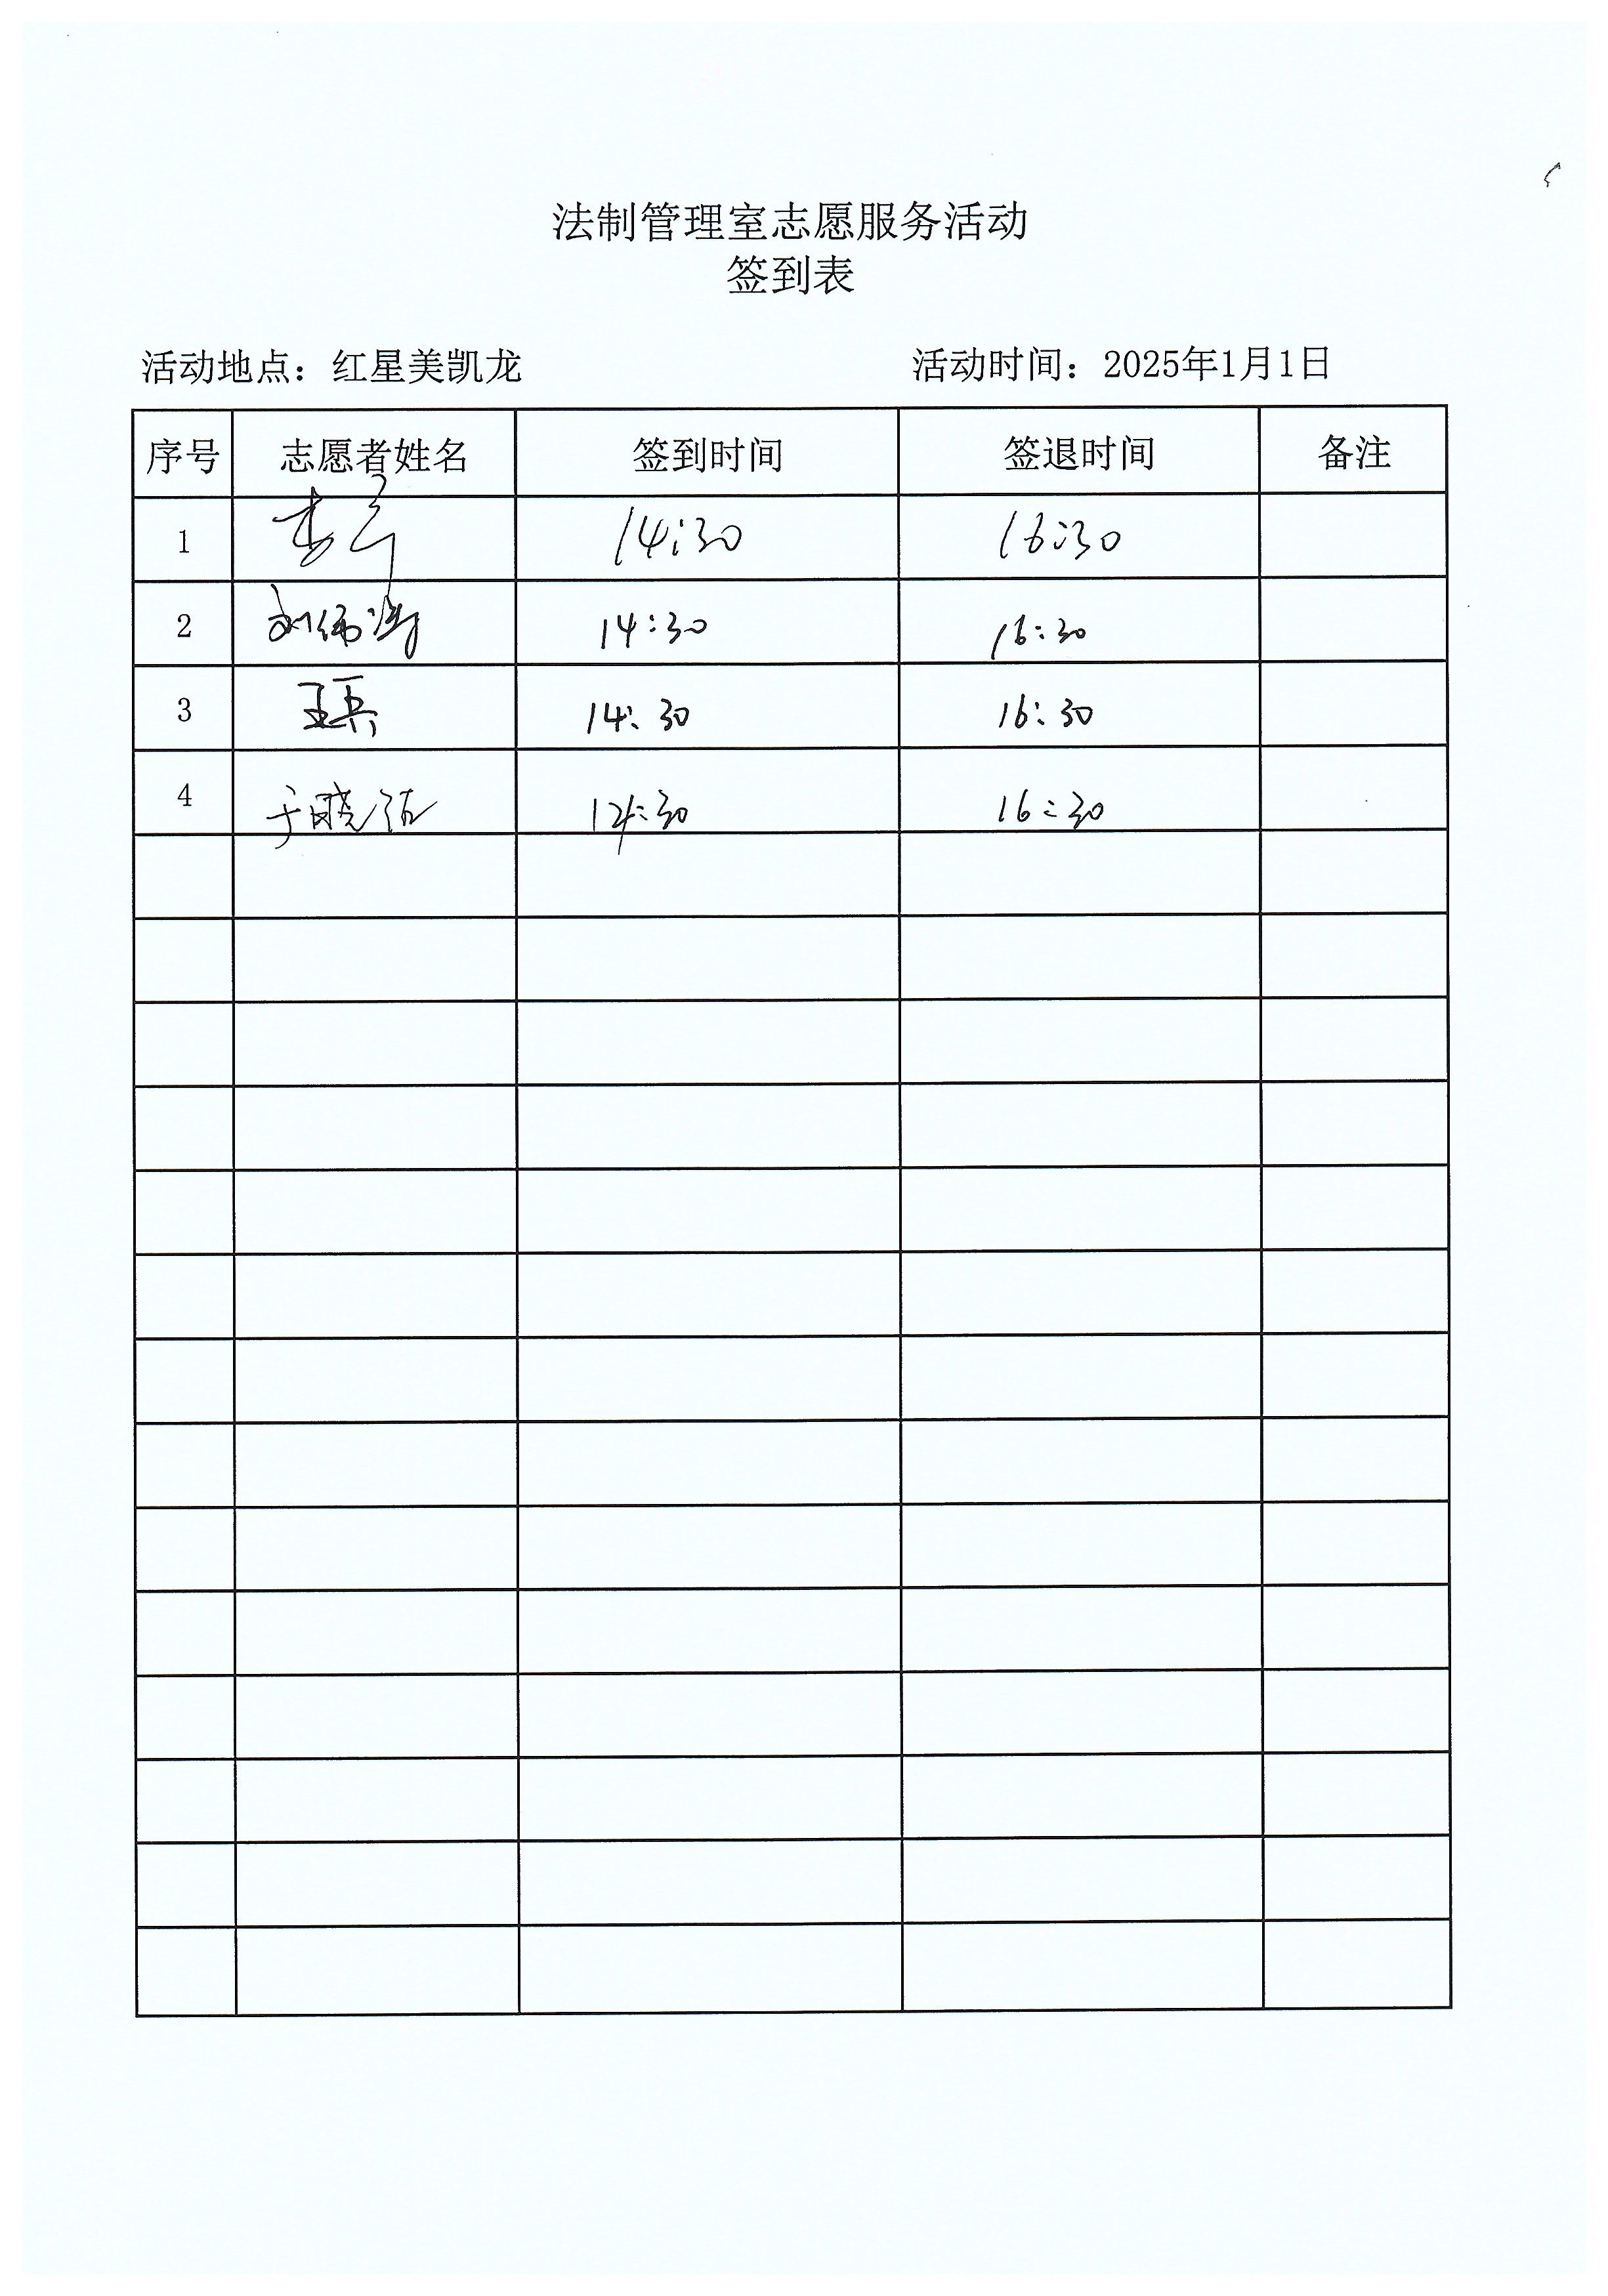 法制管理室志愿服务活动
签到表
活动地点：红星美凯龙 活动时间：2025年1月1日
序号 志愿者姓名 签到时间 签退时间 备注
1 14:30 16:30
2 刘伟涛 14:30 16:30
3 王兵 14:30 16:30
4 于晓洁 14:30 16:30